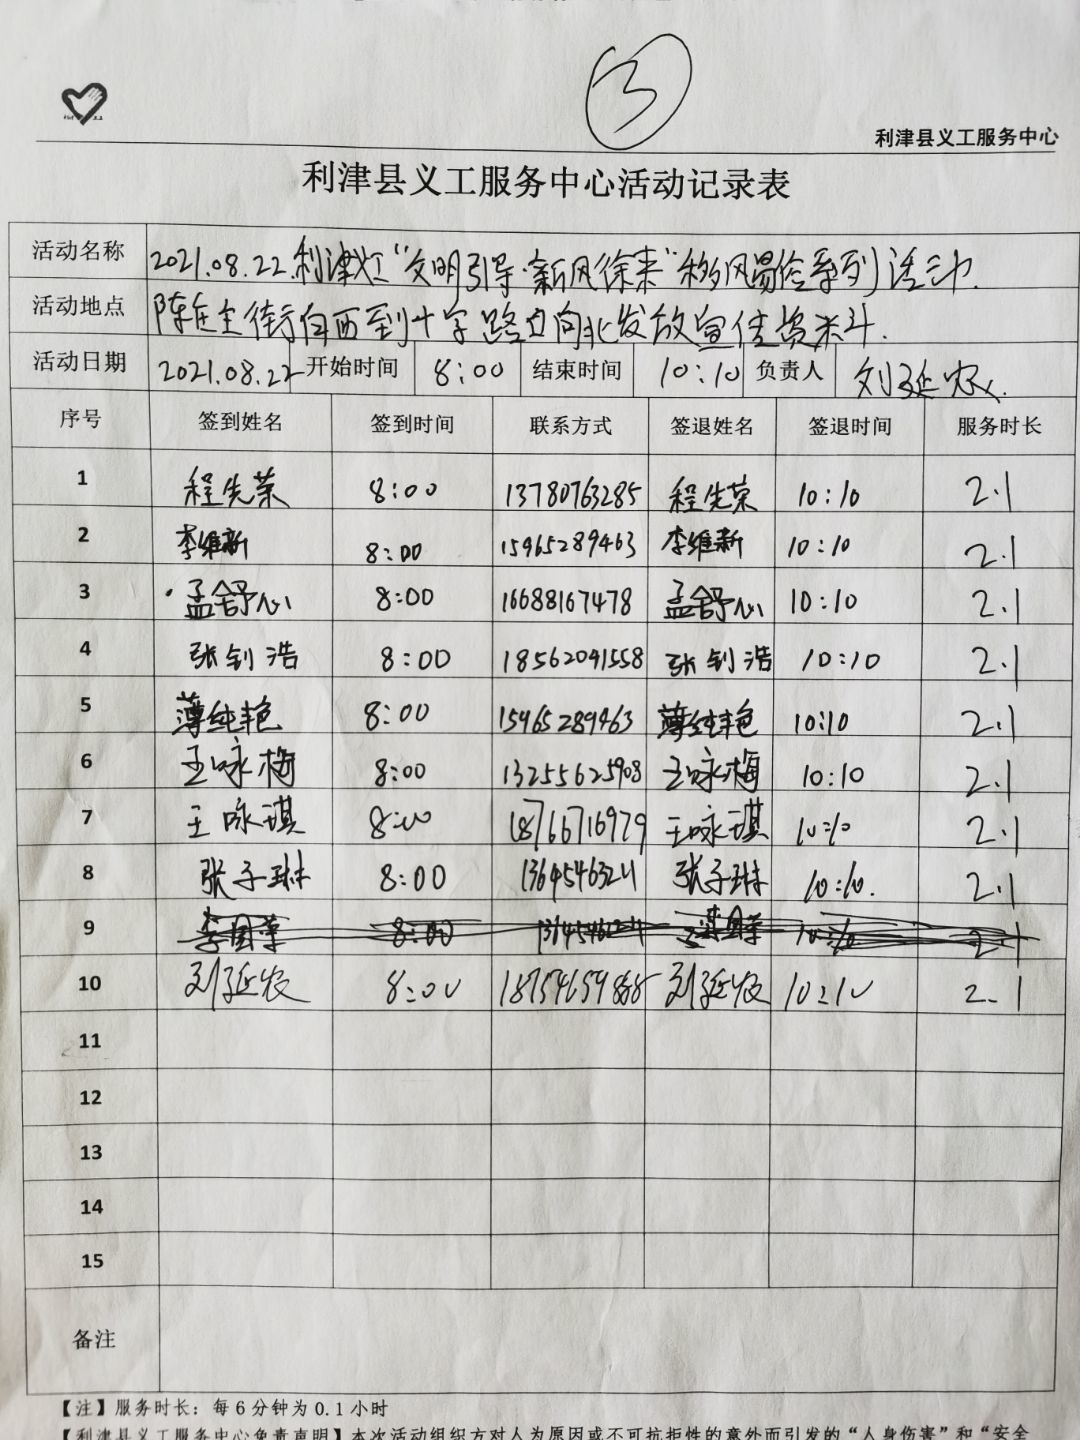 3
利津县义工服务中心
利津县义工服务中心活动记录表
活动名称 2021.08.22.利津灶“文明引导·新风徐来”移风易俗系列活动.
活动地点 陈庄主街向西到十字路口向北发放宣传资料.
活动日期 2021.08.22 开始时间 8:00 结束时间 10:10 负责人 刘延农.
序号 签到姓名 签到时间 联系方式 签退姓名 签退时间 服务时长
1 程先荣 8:00 13780763285 程先荣 10:10 2.1
2 李维新 8:00 15965289463 李维新 10:10 2.1
3 孟舒心 8:00 16688167478 孟舒心 10:10 2.1
4 张钊浩 8:00 18562041558 张钊浩 10:10 2.1
5 薄纯艳 8:00 15965289463 薄纯艳 10:10 2.1
6 王咏梅 8:00 13255625908 王咏梅 10:10 2.1
7 王咏琪 8:00 18766716979 王咏琪 10:10 2.1
8 张子琳 8:00 13645463211 张子琳 10:10. 2.1
9 8:00 2.1
10 刘延农 8:00 18754659868 刘延农 10:10 2.1
11
12
13
14
15
备注
【注】服务时长：每6分钟为0.1小时
【利津县义工服务中心免责声明】本次活动组织方对人为原因或不可抗拒性的意外而引发的“人身伤害”和“安全